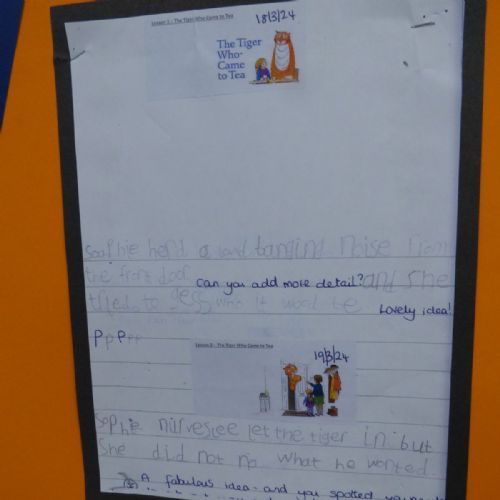 Lesson 1 - The Tiger Who Came to Tea
18/3/24
The Tiger
Who
Came
to Tea
Soophie herd a loud banging noise from
the front door can you add more detail? and she
tried to gess who it wood be Lovely idea!
P p P p p
Lesson 2 - The Tiger Who Came to Tea
19/3/24
Sophie let the tiger in but
She did not no what he wonted.
A fabulous idea - and you spotted